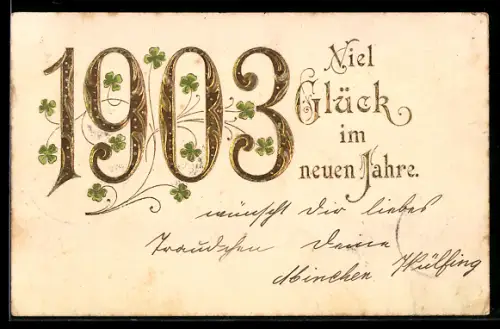 1903
Viel
Glück
im
neuen Jahre.
wünscht Dir liebes
Traudchen Deine
Minchen Wülfing